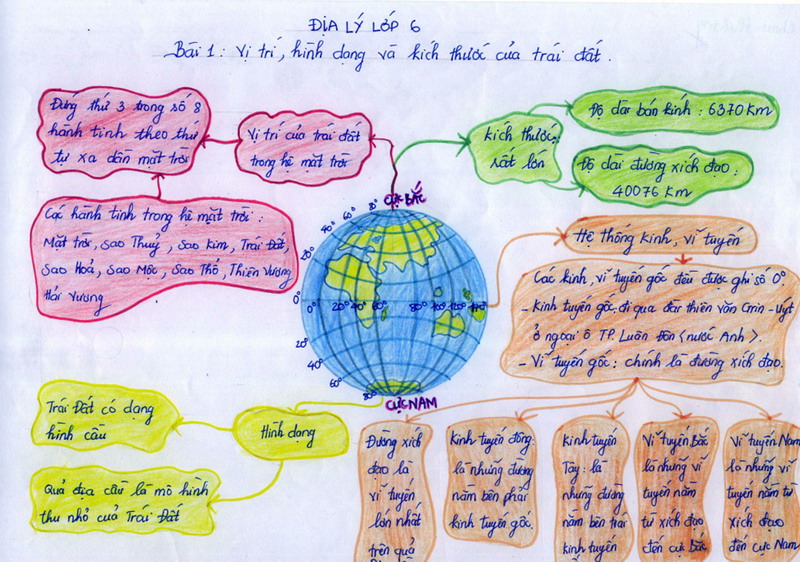 ĐỊA LÝ LỚP 6
Bài 1: Vị trí, hình dạng và kích thước của trái đất.
Đứng thứ 3 trong số 8
hành tinh theo thứ
tự xa dần mặt trời
Vị trí của trái đất
trong hệ mặt trời
Các hành tinh trong hệ mặt trời:
Mặt trời, Sao Thuỷ, Sao Kim, Trái Đất,
Sao Hoả, Sao Mộc, Sao Thổ, Thiên Vương
Hải Vương
kích thước
rất lớn
Độ dài bán kính: 6370 Km
Độ dài đường xích đạo:
40076 Km
CỰC BẮC
80°
60°
40°
20°
0°
0°
20°
40°
60°
80°
100°
120°
140°
20°
40°
60°
80°
CỰC NAM
Hệ thống kinh, vĩ tuyến
Các kinh, vĩ tuyến gốc đều được ghi số 0°
- Kinh tuyến gốc: đi qua đài thiên văn Grin - Uýt
ở ngoại ô TP. Luân Đôn <nước Anh>.
- Vĩ tuyến gốc: chính là đường xích đạo.
Trái Đất có dạng
hình cầu
Hình dạng
Quả địa cầu là mô hình
thu nhỏ của Trái Đất
Đường xích
đạo là
vĩ tuyến
lớn nhất
trên quả
Kinh tuyến đông:
là những đường
nằm bên phải
kinh tuyến gốc.
Kinh tuyến
Tây: là
những đường
nằm bên trái
kinh tuyến
Vĩ tuyến Bắc
là những vĩ
tuyến nằm
từ xích đạo
đến cực Bắc
Vĩ tuyến Nam
là những vĩ
tuyến nằm từ
xích đạo
đến cực Nam